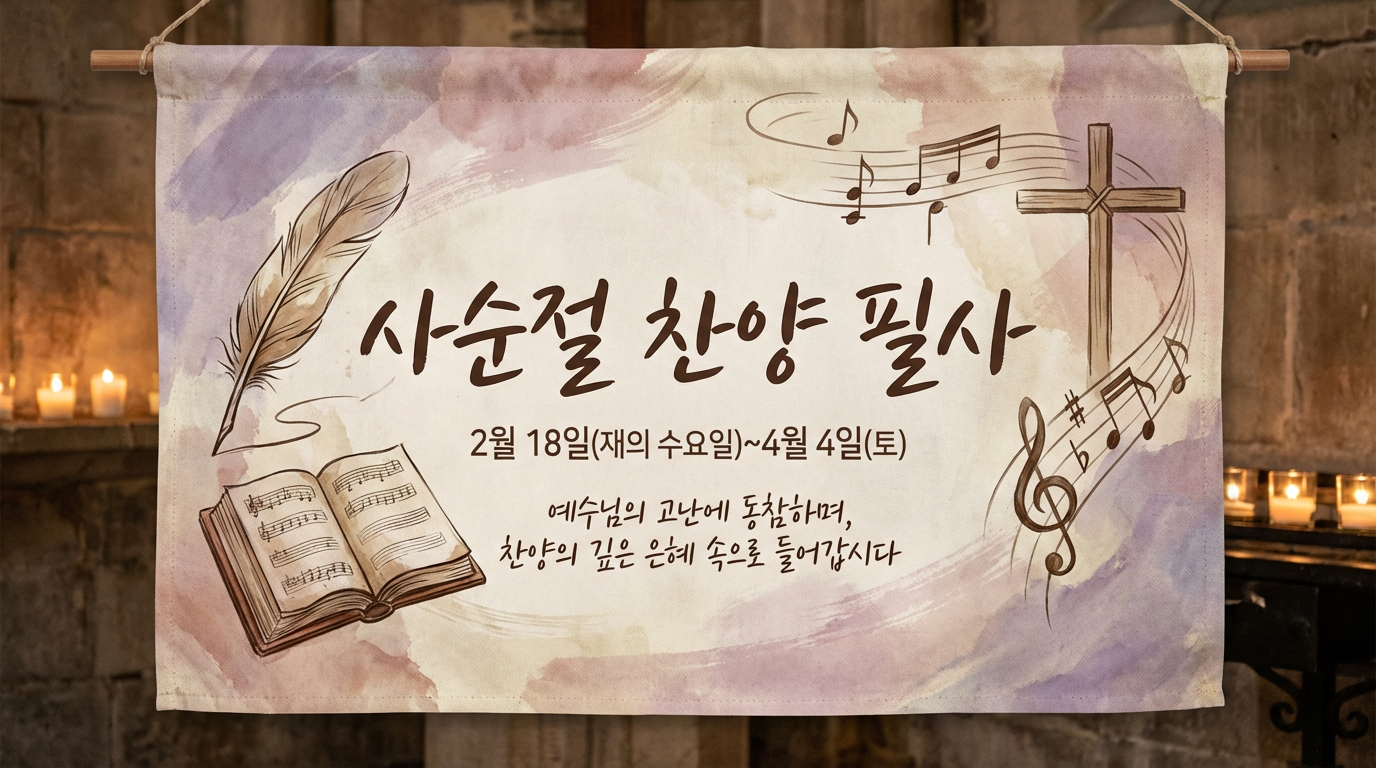 사순절 찬양 필사
2월 18일(재의 수요일)~4월 4일(토)
예수님의 고난에 동참하며,
찬양의 깊은 은혜 속으로 들어갑시다